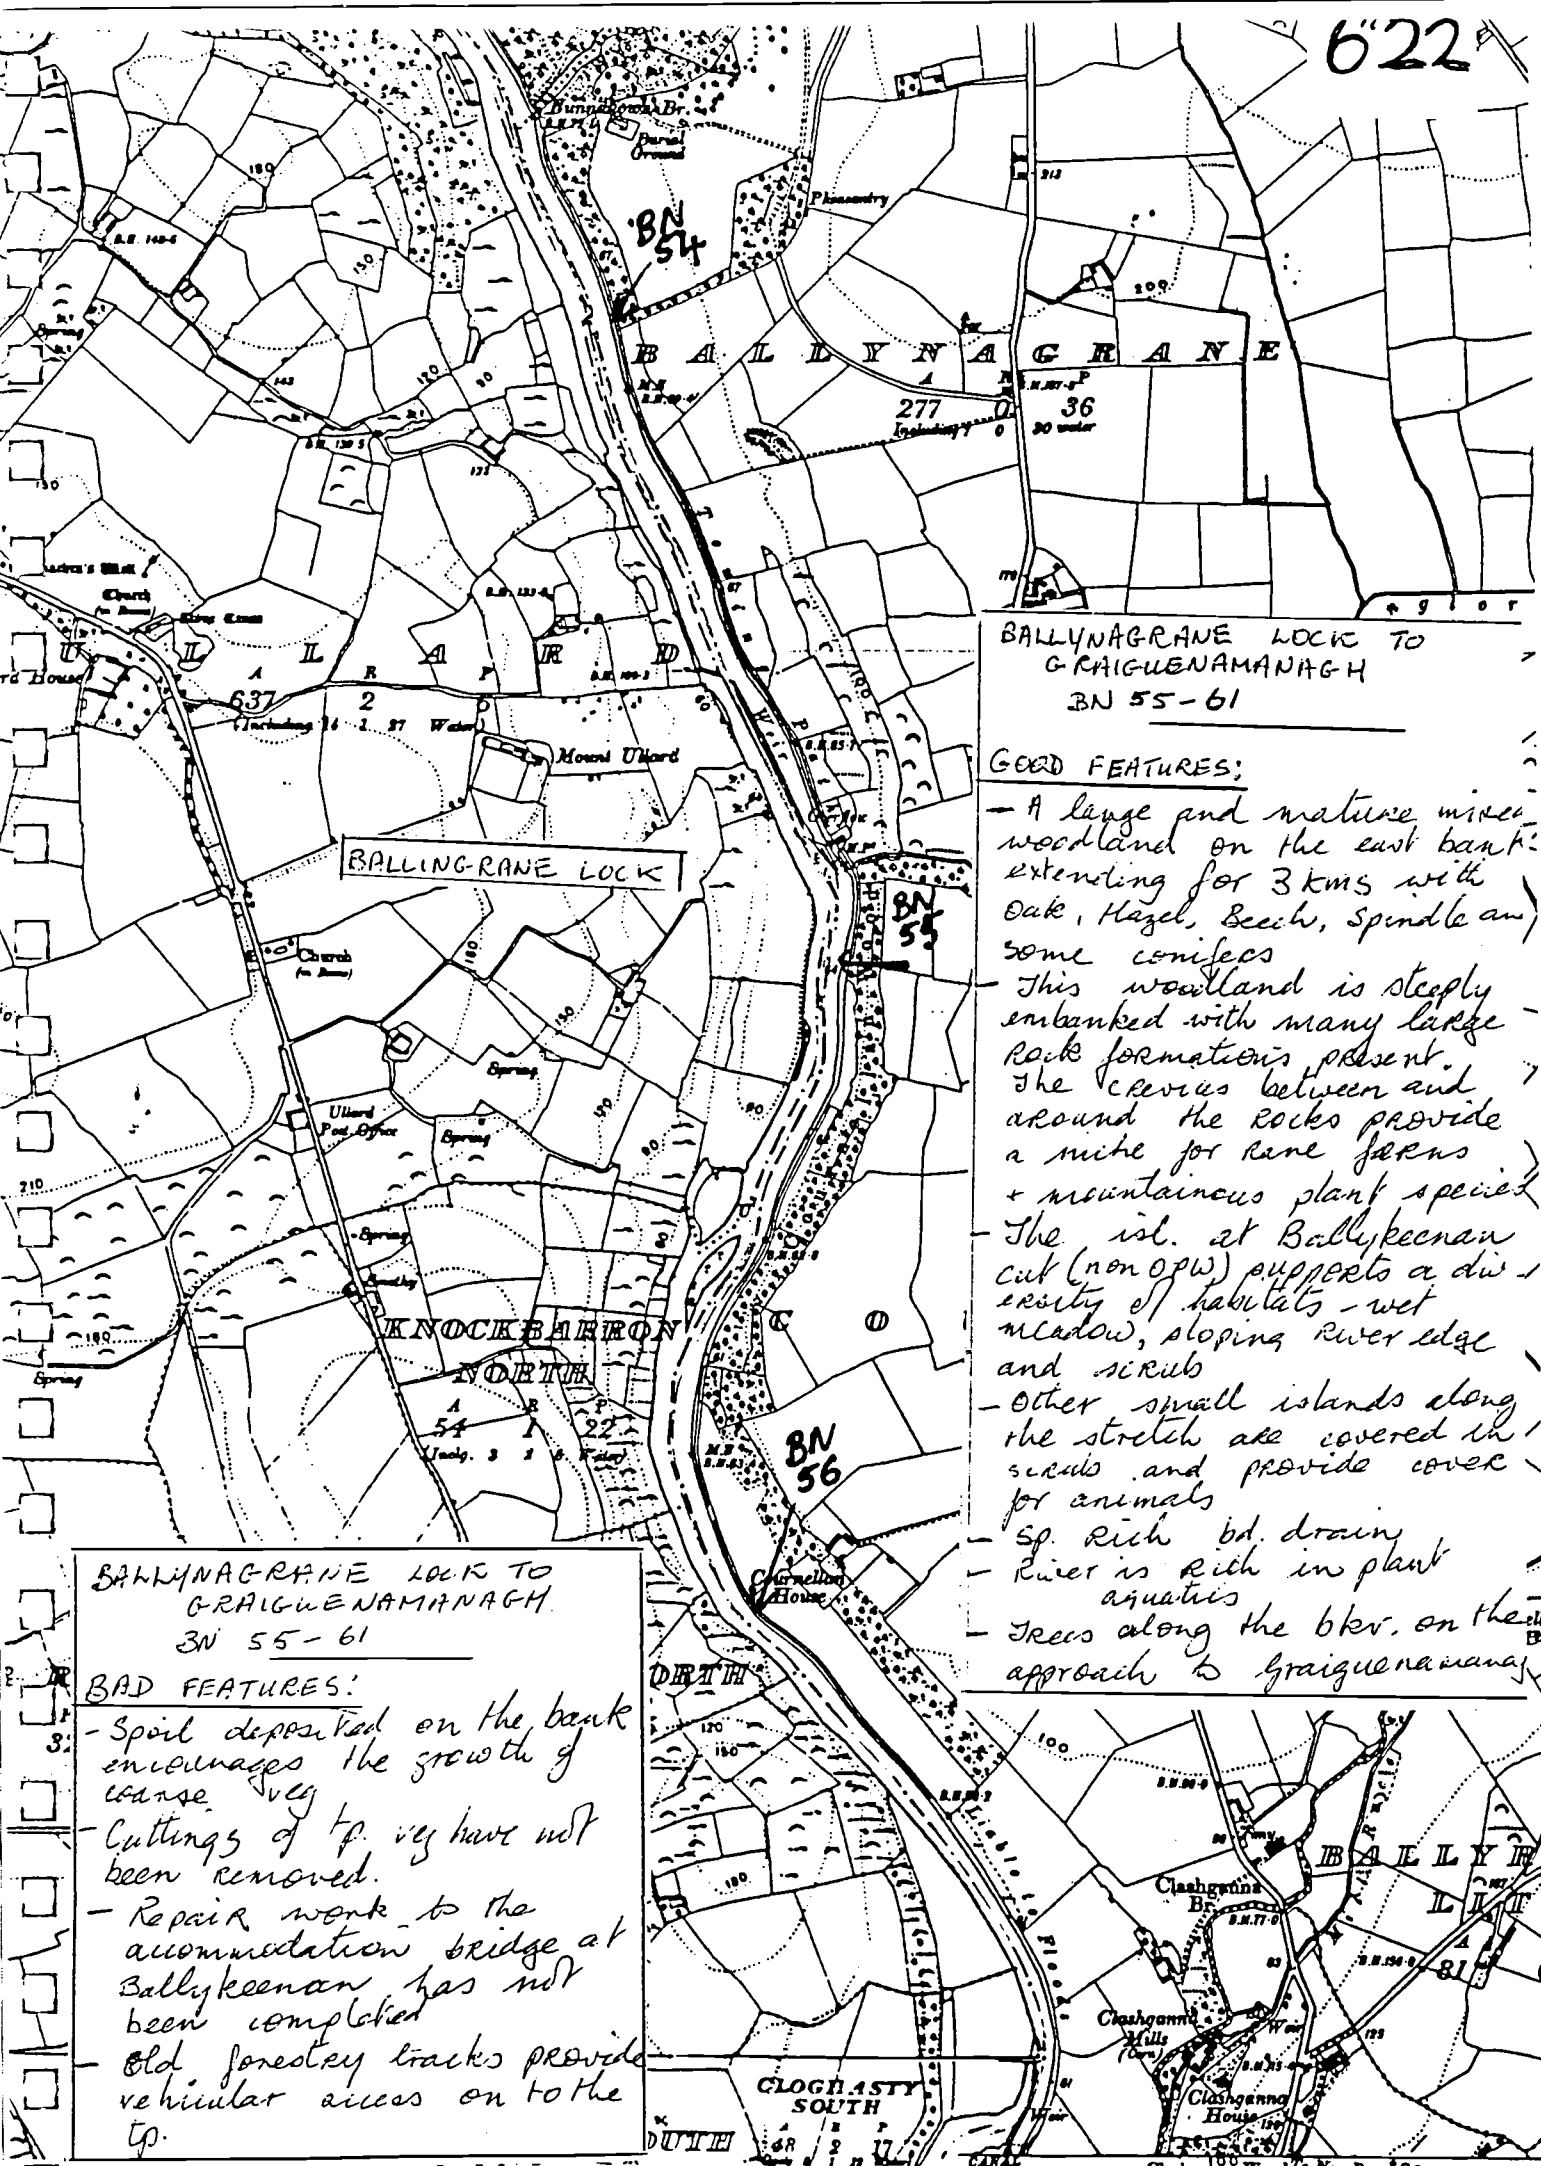 6"22
Bunnagown Br.
Burial
Ground
Pheasantry
BN
54
180
150
B.M. 148.6
213
200
Spring
143
120
90
BALLYNAGRANE
A R P
277 0 36
Including 7 0 30 water
B.M. 139.5
135
67
Church
(in Ruins)
ULLARD
A R P
637 2
(Including 16 1 27 Water)
Weir
Mount Ullard
BALLINGRANE LOCK
BN
55
Church
(in Ruins)
Spring
Ullard
Post Office
Spring
210
Spring
Smithy
KNOCKBARRON
NORTH
A R P
54 1 22
Spring
C O
BN
56
Cournellan
House
BALLYNAGRANE LOCK TO
GRAIGUENAMANAGH
BN 55-61
GOOD FEATURES:
- A large and mature mixed
woodland on the east bank
extending for 3 kms with
Oak, Hazel, Beech, Spindle an
some conifers
- This woodland is steeply
embanked with many large
Rock formations present.
The crevices between and
around the rocks provide
a niche for rare ferns
+ mountainous plant species
- The isl. at Ballykeenan
cut (non OPW) supports a div
ersity of habitats - wet
meadow, sloping river edge
and scrub
- Other small islands along
the stretch are covered in
scrub and provide cover
for animals
- Sp. Rich bd. drain
- River is rich in plant
aquatics
- Trees along the bkr. on the
approach to Graiguenamanag
BALLYNAGRANE LOCK TO
GRAIGUENAMANAGH
BN 55-61
BAD FEATURES:
- Spoil deposited on the bank
encourages the growth of
coarse veg
- Cuttings of tp. veg have not
been removed.
- Repair work to the
accommodation bridge at
Ballykeenan has not
been completed
- Old forestry tracks provide
vehicular access on to the
tp.
ORTH
120
150
180
100
Liable to Floods
Clashganna
Br.
B.M. 77.0
BALLYK
LIT
A
81
Clashganna
Mills
(Corn)
Weir
125
Clashganna
House
CLOGHASTY
SOUTH
A R P
48 2 17
OUTH
Weir
CANAL